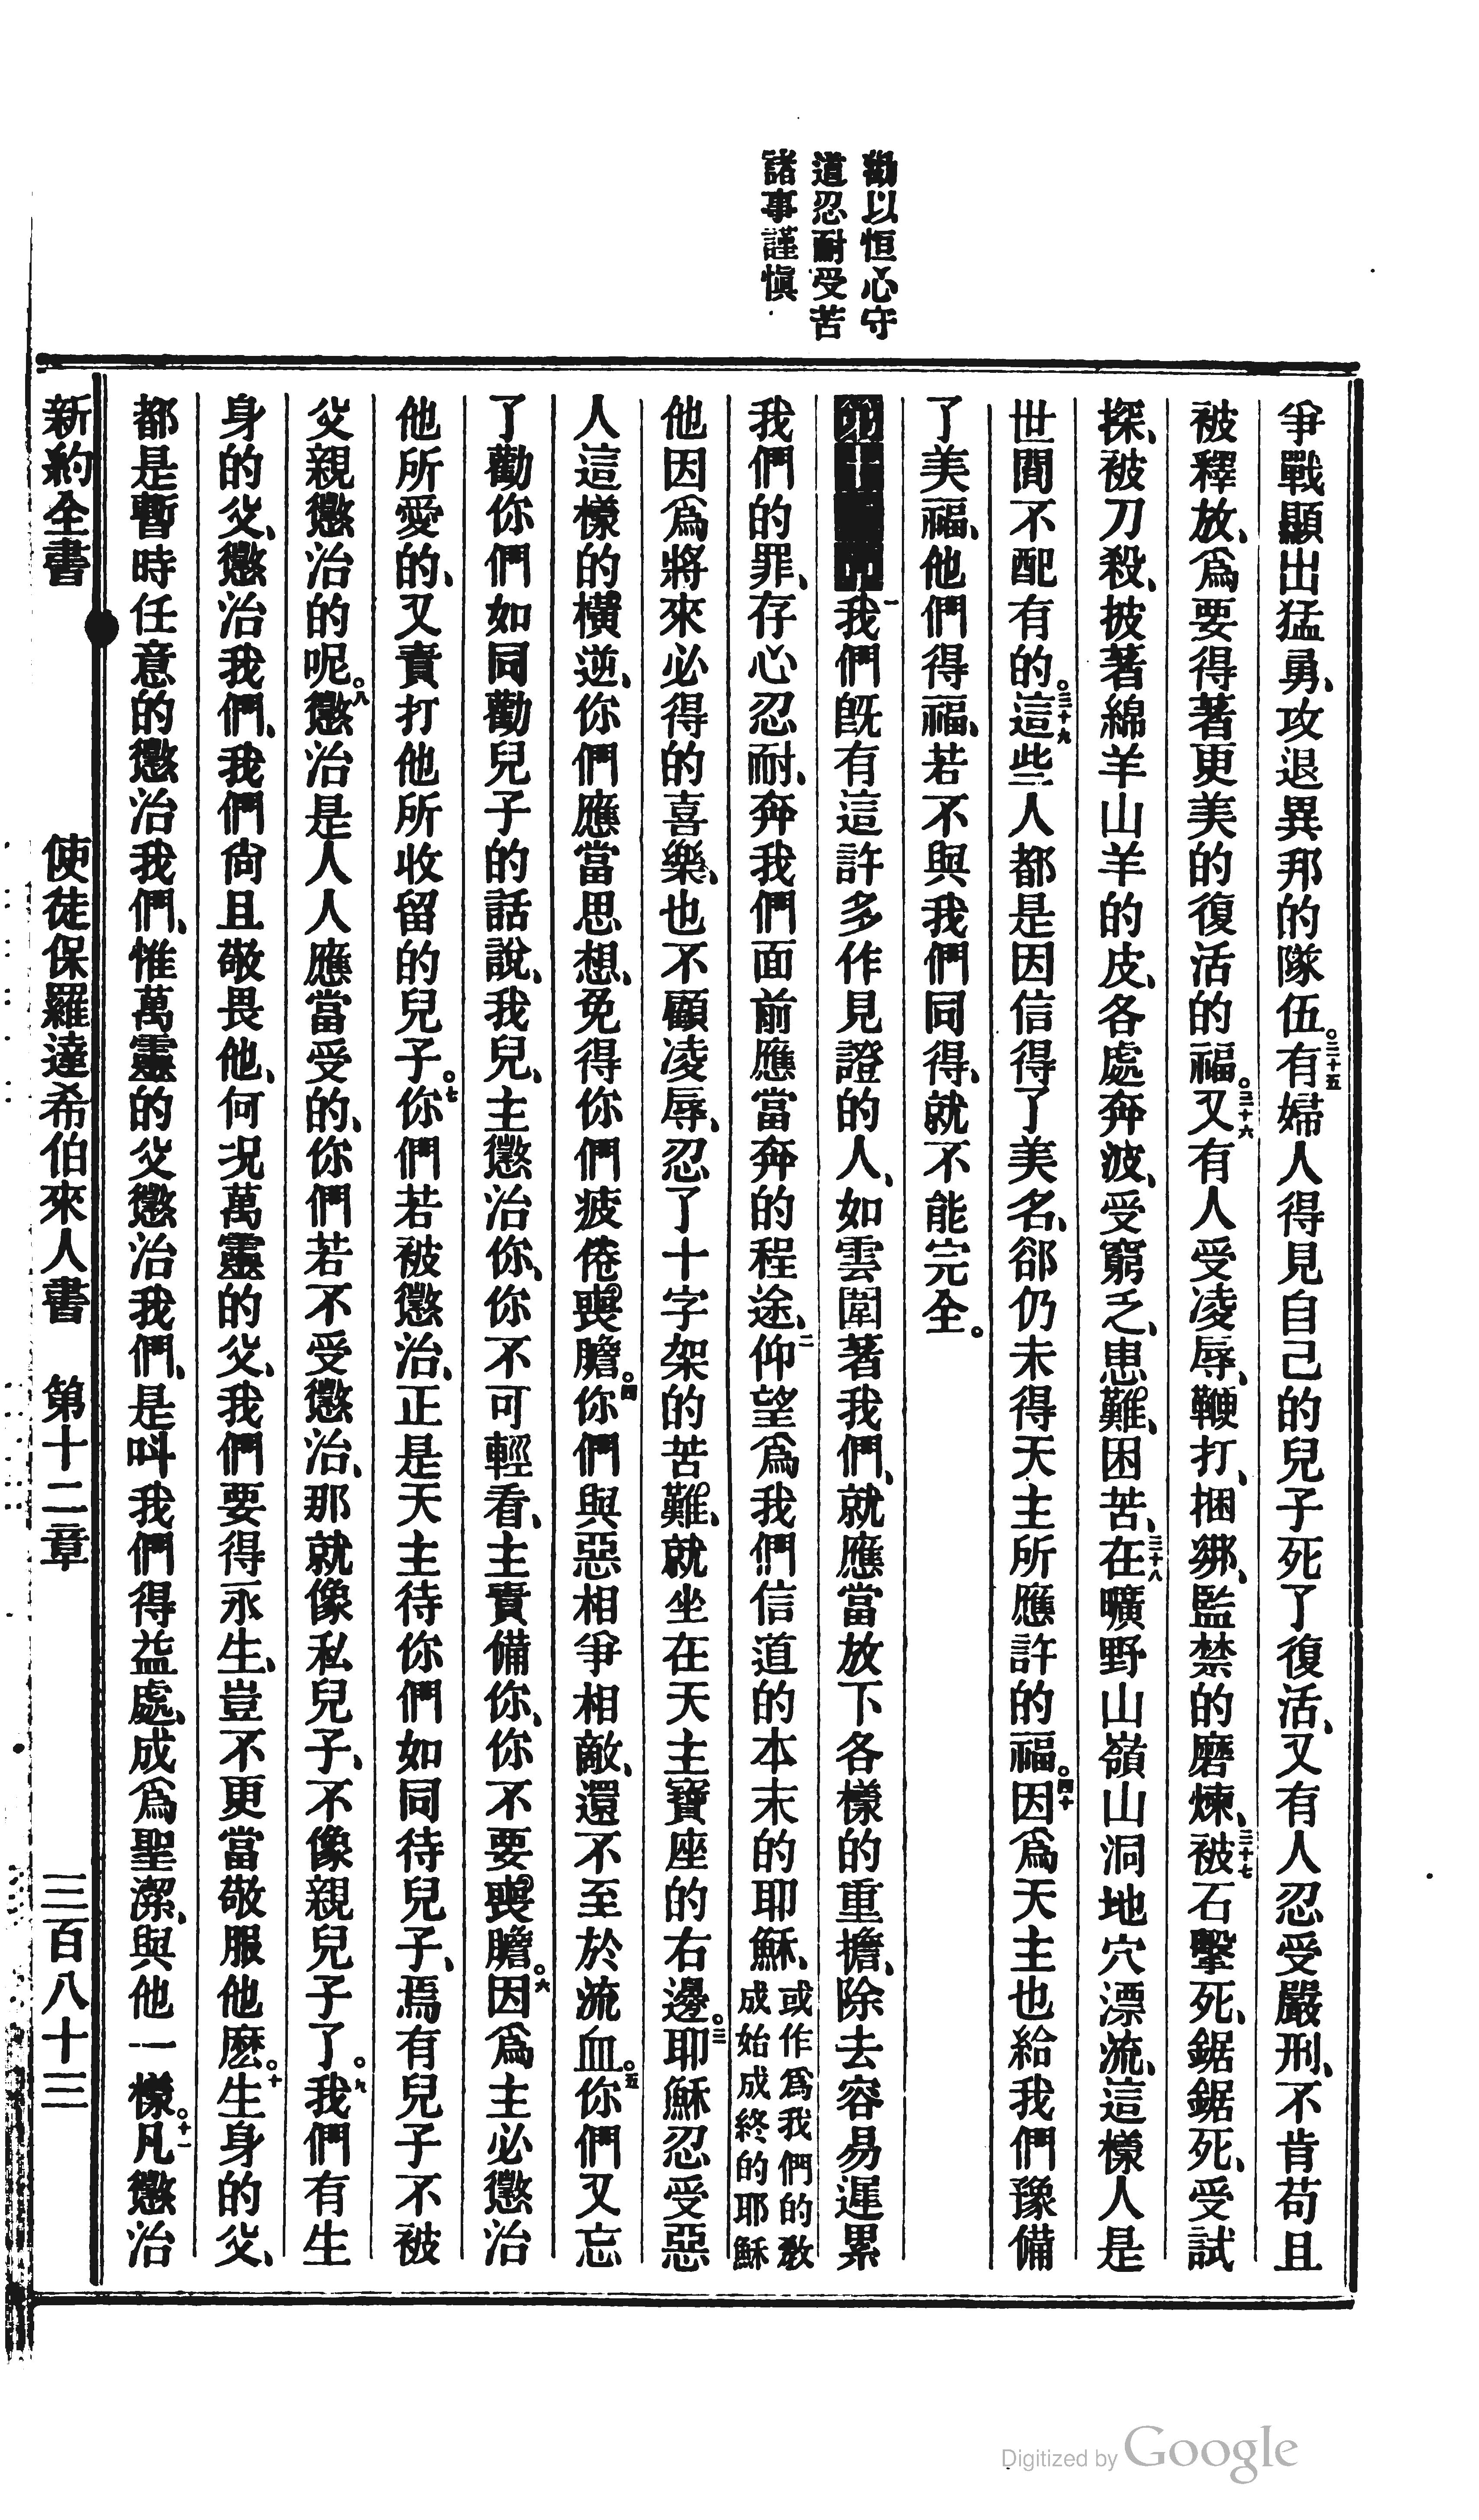 勸以恒心守
道忍耐受苦
諸事謹愼
爭戰顯出猛勇、攻退異邦的隊伍。三十五有婦人得見自己的兒子死了復活、又有人忍受嚴刑、不肯苟且
被釋放、爲要得著更美的復活的福。三十六又有人受凌辱、鞭打、捆綁、監禁的磨煉、三十七被石擊死、鋸鋸死、受試
探、被刀殺、披著綿羊山羊的皮、各處奔波、受窮乏、患難、困苦、三十八在曠野山嶺山洞地穴漂流、這樣人是
世間不配有的。三十九這些人都是因信得了美名、郤仍未得天主所應許的福。四十因爲天主也給我們豫備
了美福、他們得福、若不與我們同得、就不能完全。
一我們旣有這許多作見證的人、如雲圍著我們、就應當放下各樣的重擔、除去容易遲累
我們的罪、存心忍耐、奔我們面前應當奔的程途、二仰望爲我們信道的本末的耶穌、或作爲我們的敎成始成終的耶穌
他因爲將來必得的喜樂、也不顧凌辱、忍了十字架的苦難、就坐在天主寶座的右邊。三耶穌忍受惡
人這樣的橫逆、你們應當思想、免得你們疲倦喪膽。四你們與惡相爭相敵、還不至於流血。五你們又忘
了勸你們如同勸兒子的話說、我兒、主懲治你、你不可輕看、主責備你、你不要喪膽。六因爲主必懲治
他所愛的、又責打他所收留的兒子。七你們若被懲治、正是天主待你們如同待兒子、焉有兒子不被
父親懲治的呢。八懲治是人人應當受的、你們若不受懲治、那就像私兒子、不像親兒子了。九我們有生
身的父、懲治我們、我們尙且敬畏他、何况萬靈的父、我們要得永生、豈不更當敬服他麽。十生身的父、
都是暫時任意的懲治我們、惟萬靈的父懲治我們、是呌我們得益處、成爲聖潔、與他一樣。十一凡懲治
新約全書 使徒保羅達希伯來人書 第十二章 三百八十三
Digitized by Google